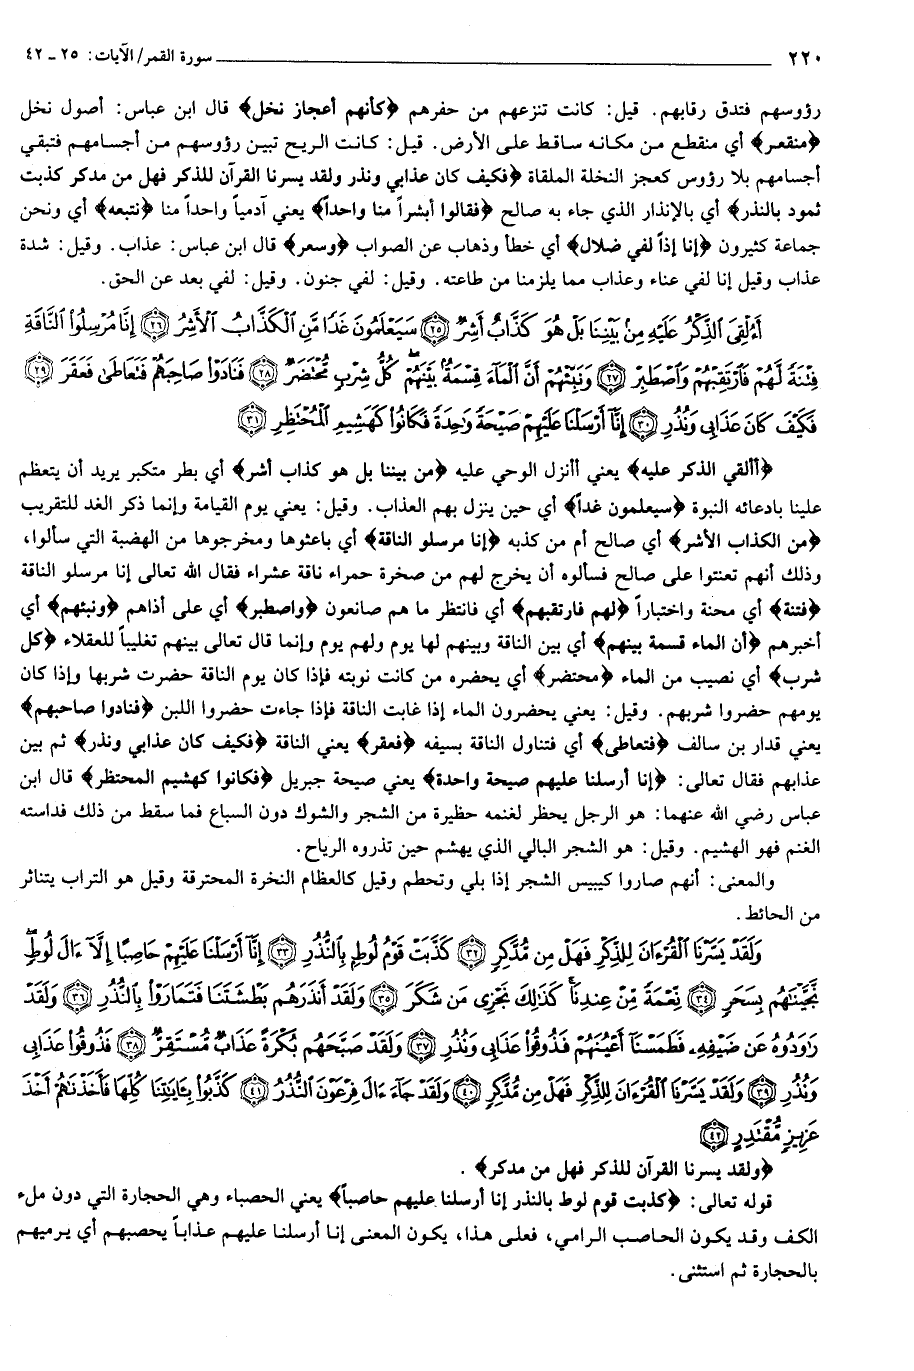 ٢٢٠ سورة القمر/ الآيات: ٢٥ - ٤٢
رؤوسهم فتدق رقابهم. قيل: كانت تنزعهم من حفرهم ﴿كأنهم أعجاز نخل﴾ قال ابن عباس: أصول نخل
﴿منقعر﴾ أي منقطع من مكانه ساقط على الأرض. قيل: كانت الريح تبين رؤوسهم من أجسامهم فتبقي
أجسامهم بلا رؤوس كعجز النخلة الملقاة ﴿فكيف كان عذابي ونذر ولقد يسرنا القرآن للذكر فهل من مدكر كذبت
ثمود بالنذر﴾ أي بالإنذار الذي جاء به صالح ﴿فقالوا أبشراً منا واحداً﴾ يعني آدمياً واحداً منا ﴿نتبعه﴾ أي ونحن
جماعة كثيرون ﴿إنا إذاً لفي ضلال﴾ أي خطأ وذهاب عن الصواب ﴿وسعر﴾ قال ابن عباس: عذاب. وقيل: شدة
عذاب وقيل إنا لفي عناء وعذاب مما يلزمنا من طاعته. وقيل: لفي جنون. وقيل: لفي بعد عن الحق.
أَءُلْقِيَ ٱلذِّكْرُ عَلَيْهِ مِنۢ بَيْنِنَا بَلْ هُوَ كَذَّابٌ أَشِرٌ ٢٥ سَيَعْلَمُونَ غَدًا مَّنِ ٱلْكَذَّابُ ٱلْأَشِرُ ٢٦ إِنَّا مُرْسِلُوا۟ ٱلنَّاقَةِ
فِتْنَةً لَّهُمْ فَٱرْتَقِبْهُمْ وَٱصْطَبِرْ ٢٧ وَنَبِّئْهُمْ أَنَّ ٱلْمَآءَ قِسْمَةٌۢ بَيْنَهُمْ كُلُّ شِرْبٍ مُّحْتَضَرٌ ٢٨ فَنَادَوْا۟ صَاحِبَهُمْ فَتَعَاطَىٰ فَعَقَرَ ٢٩
فَكَيْفَ كَانَ عَذَابِى وَنُذُرِ ٣٠ إِنَّآ أَرْسَلْنَا عَلَيْهِمْ صَيْحَةً وَٰحِدَةً فَكَانُوا۟ كَهَشِيمِ ٱلْمُحْتَظِرِ ٣١
﴿أألقي الذكر عليه﴾ يعني أأنزل الوحي عليه ﴿من بيننا بل هو كذاب أشر﴾ أي بطر متكبر يريد أن يتعظم
علينا بادعائه النبوة ﴿سيعلمون غداً﴾ أي حين ينزل بهم العذاب. وقيل: يعني يوم القيامة وإنما ذكر الغد للتقريب
﴿من الكذاب الأشر﴾ أي صالح أم من كذبه ﴿إنا مرسلو الناقة﴾ أي باعثوها ومخرجوها من الهضبة التي سألوا،
وذلك أنهم تعنتوا على صالح فسألوه أن يخرج لهم من صخرة حمراء ناقة عشراء فقال الله تعالى إنا مرسلو الناقة
﴿فتنة﴾ أي محنة واختباراً ﴿لهم فارتقبهم﴾ أي فانتظر ما هم صانعون ﴿واصطبر﴾ أي على أذاهم ﴿ونبئهم﴾ أي
أخبرهم ﴿أن الماء قسمة بينهم﴾ أي بين الناقة وبينهم لها يوم ولهم يوم وإنما قال تعالى بينهم تغليباً للعقلاء ﴿كل
شرب﴾ أي نصيب من الماء ﴿محتضر﴾ أي يحضره من كانت نوبته فإذا كان يوم الناقة حضرت شربها وإذا كان
يومهم حضروا شربهم. وقيل: يعني يحضرون الماء إذا غابت الناقة فإذا جاءت حضروا اللبن ﴿فنادوا صاحبهم﴾
يعني قدار بن سالف ﴿فتعاطى﴾ أي فتناول الناقة بسيفه ﴿فعقر﴾ يعني الناقة ﴿فكيف كان عذابي ونذر﴾ ثم بين
عذابهم فقال تعالى: ﴿إنا أرسلنا عليهم صيحة واحدة﴾ يعني صيحة جبريل ﴿فكانوا كهشيم المحتظر﴾ قال ابن
عباس رضي الله عنهما: هو الرجل يحظر لغنمه حظيرة من الشجر والشوك دون السباع فما سقط من ذلك فداسته
الغنم فهو الهشيم. وقيل: هو الشجر البالي الذي يهشم حين تذروه الرياح.
والمعنى: أنهم صاروا كيبيس الشجر إذا بلي وتحطم وقيل كالعظام النخرة المحترقة وقيل هو التراب يتناثر
من الحائط.
وَلَقَدْ يَسَّرْنَا ٱلْقُرْءَانَ لِلذِّكْرِ فَهَلْ مِن مُّدَّكِرٍ ٣٢ كَذَّبَتْ قَوْمُ لُوطٍۭ بِٱلنُّذُرِ ٣٣ إِنَّآ أَرْسَلْنَا عَلَيْهِمْ حَاصِبًا إِلَّآ ءَالَ لُوطٍ
نَّجَّيْنَٰهُم بِسَحَرٍ ٣٤ نِّعْمَةً مِّنْ عِندِنَا كَذَٰلِكَ نَجْزِى مَن شَكَرَ ٣٥ وَلَقَدْ أَنذَرَهُم بَطْشَتَنَا فَتَمَارَوْا۟ بِٱلنُّذُرِ ٣٦ وَلَقَدْ
رَٰوَدُوهُ عَن ضَيْفِهِۦ فَطَمَسْنَآ أَعْيُنَهُمْ فَذُوقُوا۟ عَذَابِى وَنُذُرِ ٣٧ وَلَقَدْ صَبَّحَهُم بُكْرَةً عَذَابٌ مُّسْتَقِرٌّ ٣٨ فَذُوقُوا۟ عَذَابِى
وَنُذُرِ ٣٩ وَلَقَدْ يَسَّرْنَا ٱلْقُرْءَانَ لِلذِّكْرِ فَهَلْ مِن مُّدَّكِرٍ ٤٠ وَلَقَدْ جَآءَ ءَالَ فِرْعَوْنَ ٱلنُّذُرُ ٤١ كَذَّبُوا۟ بِـَٔايَٰتِنَا كُلِّهَا فَأَخَذْنَٰهُمْ أَخْذَ
عَزِيزٍ مُّقْتَدِرٍ ٤٢
﴿ولقد يسرنا القرآن للذكر فهل من مدكر﴾ .
قوله تعالى: ﴿كذبت قوم لوط بالنذر إنا أرسلنا عليهم حاصباً﴾ يعني الحصباء وهي الحجارة التي دون ملء
الكف وقد يكون الحاصب الرامي، فعلى هذا، يكون المعنى إنا أرسلنا عليهم عذاباً يحصبهم أي يرميهم
بالحجارة ثم استثنى.